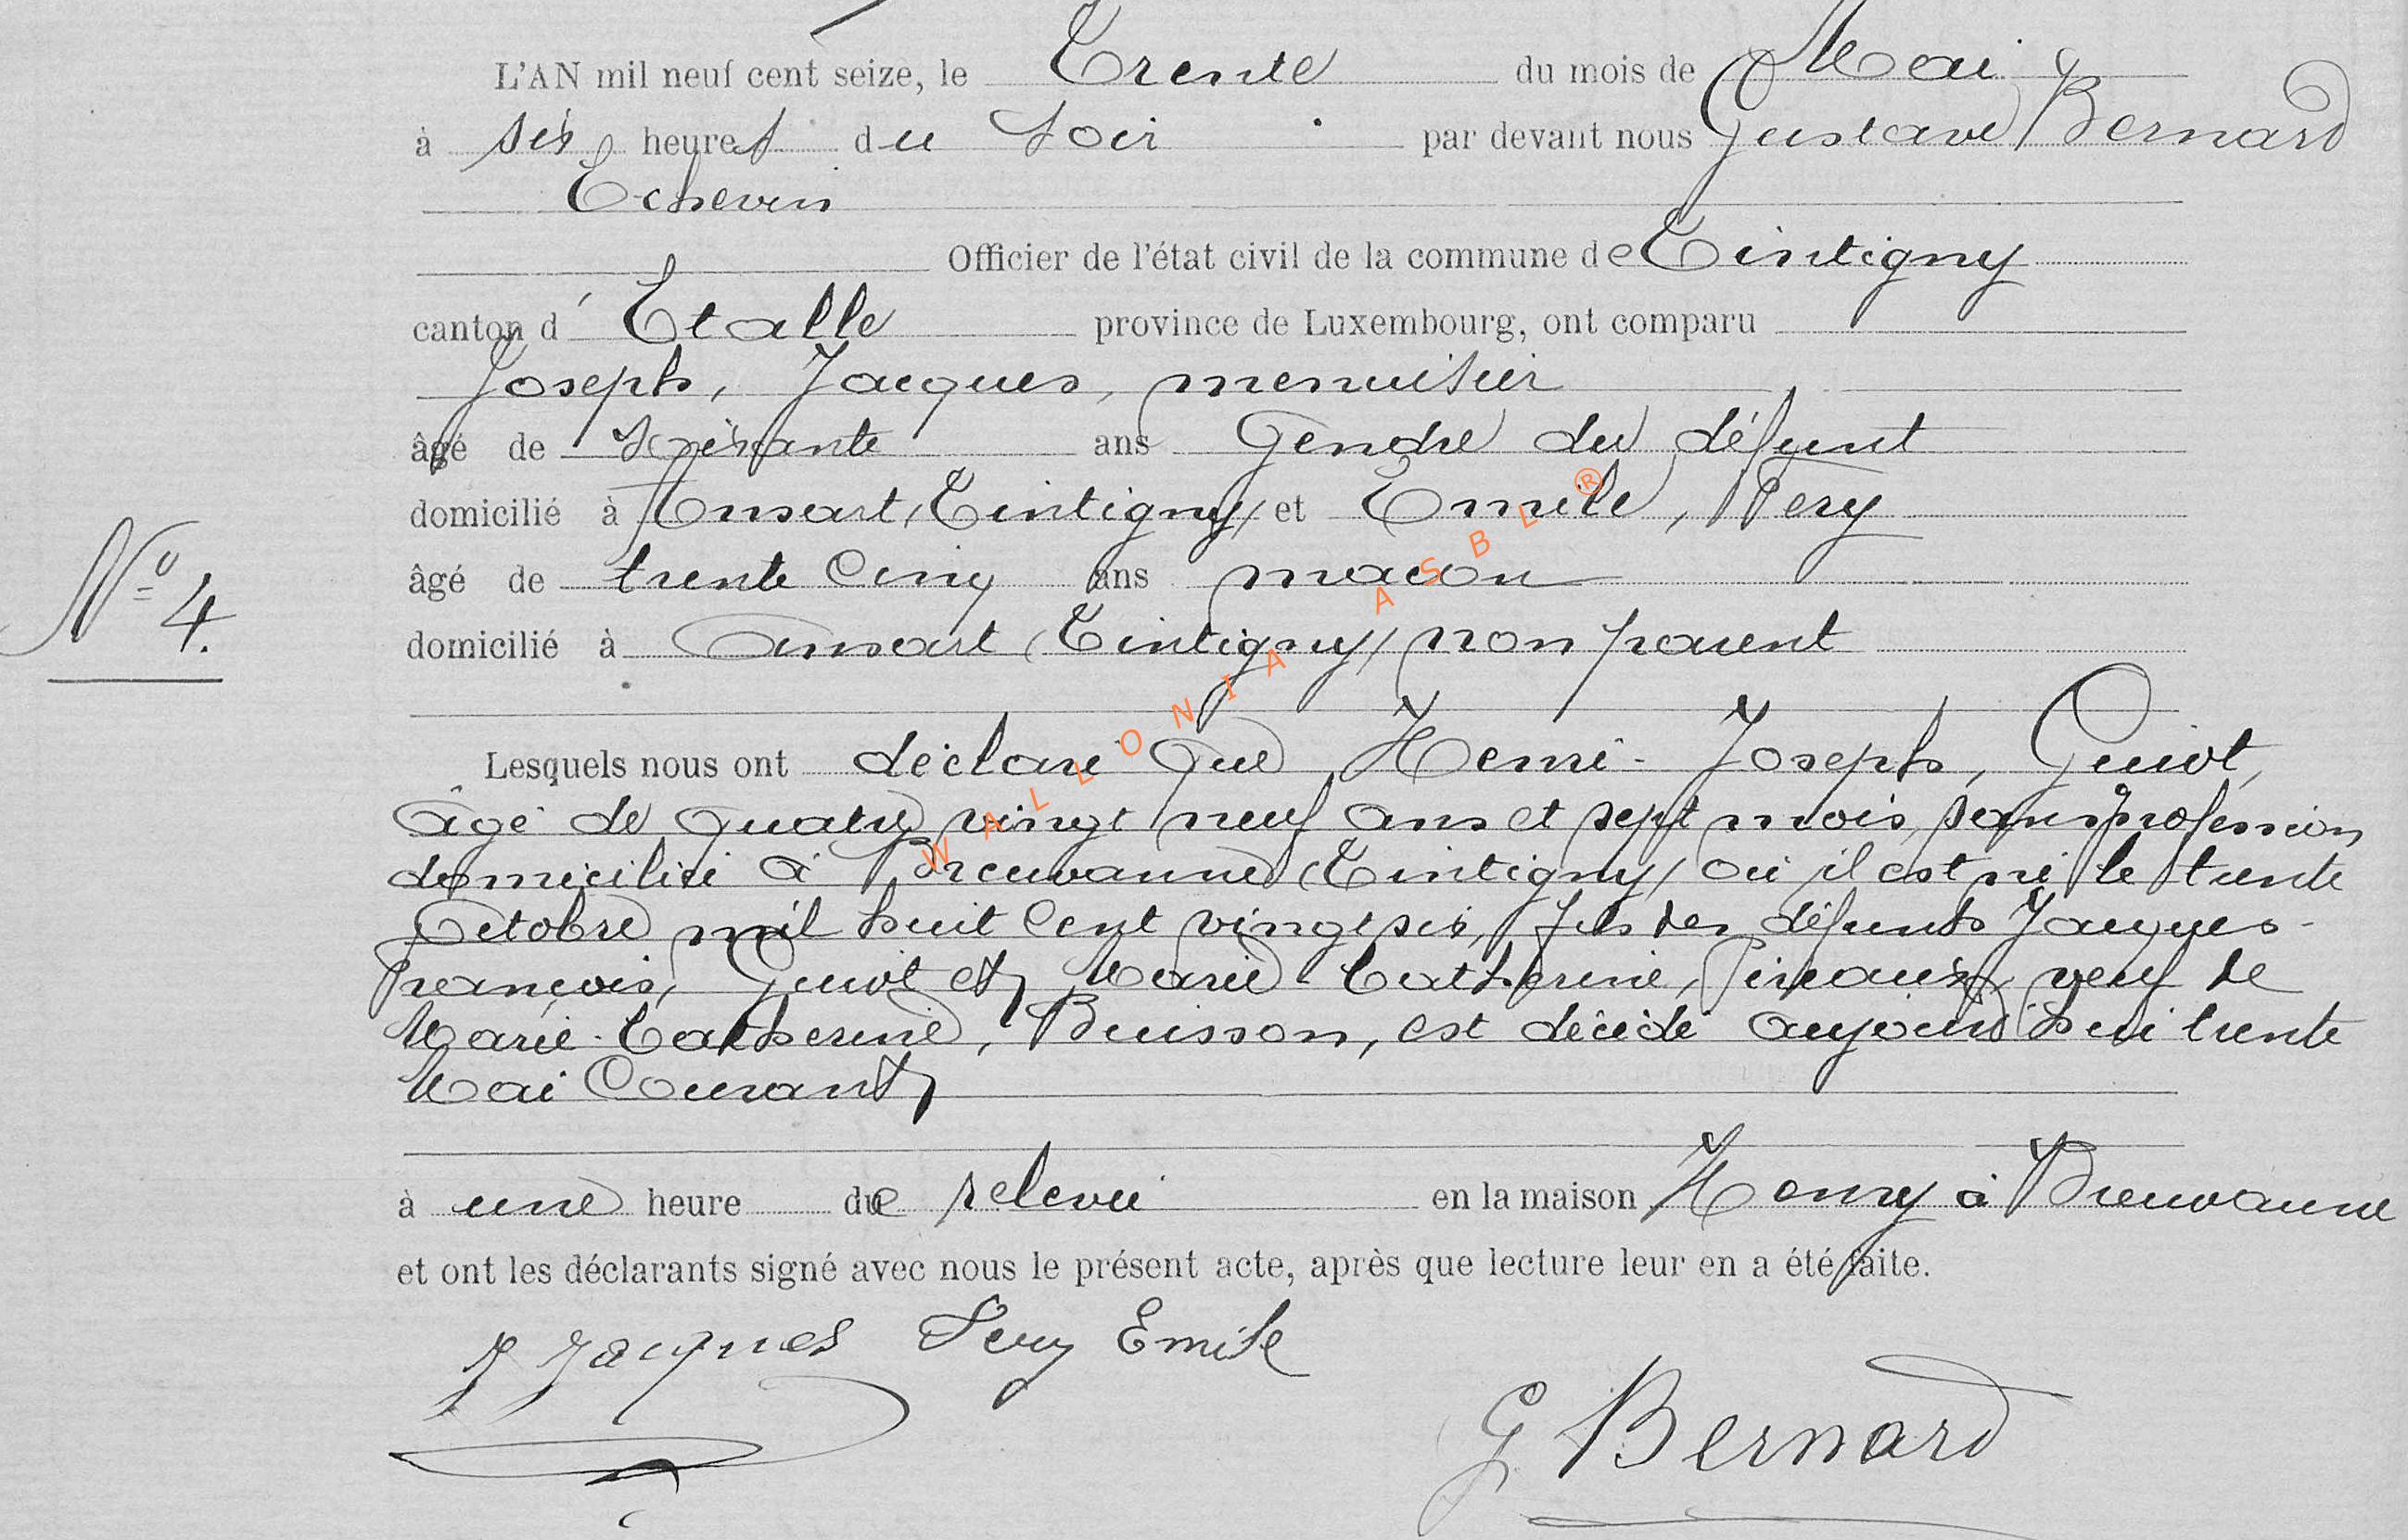 L'AN mil neuf cent seize, le Trente du mois de Mai
à six heures du Soir par devant nous Gustave Bernard
Echevin
Officier de l'état civil de la commune de Tintigny
canton d'Etalle province de Luxembourg, ont comparu
Joseph, Jacques, menuisier
âgé de soixante ans Gendre du défunt
domicilié à Ansart (Tintigny) et Emile, Pery
âgé de trente Cinq ans macon
domicilié à Ansart (Tintigny) non parent
N° 4.
Lesquels nous ont déclaré que Henri-Joseph, Guiot,
âgé de quatre vingt neuf ans et sept mois, sans profession
domicilié à Breuvanne (Tintigny) où il est né le trente
Octobre mil huit Cent vingt six, fils des défunts Jacques-
François, Guiot et Marie-Catherine, veuf de
Marie-Catherine, Buisson, est décédé aujourd'hui trente
Mai Courant
à une heure de relevée en la maison Henry à Breuvanne
et ont les déclarants signé avec nous le présent acte, après que lecture leur en a été faite.
J Jacques Pery Emile
G Bernard
WALLONIA ASBL ®